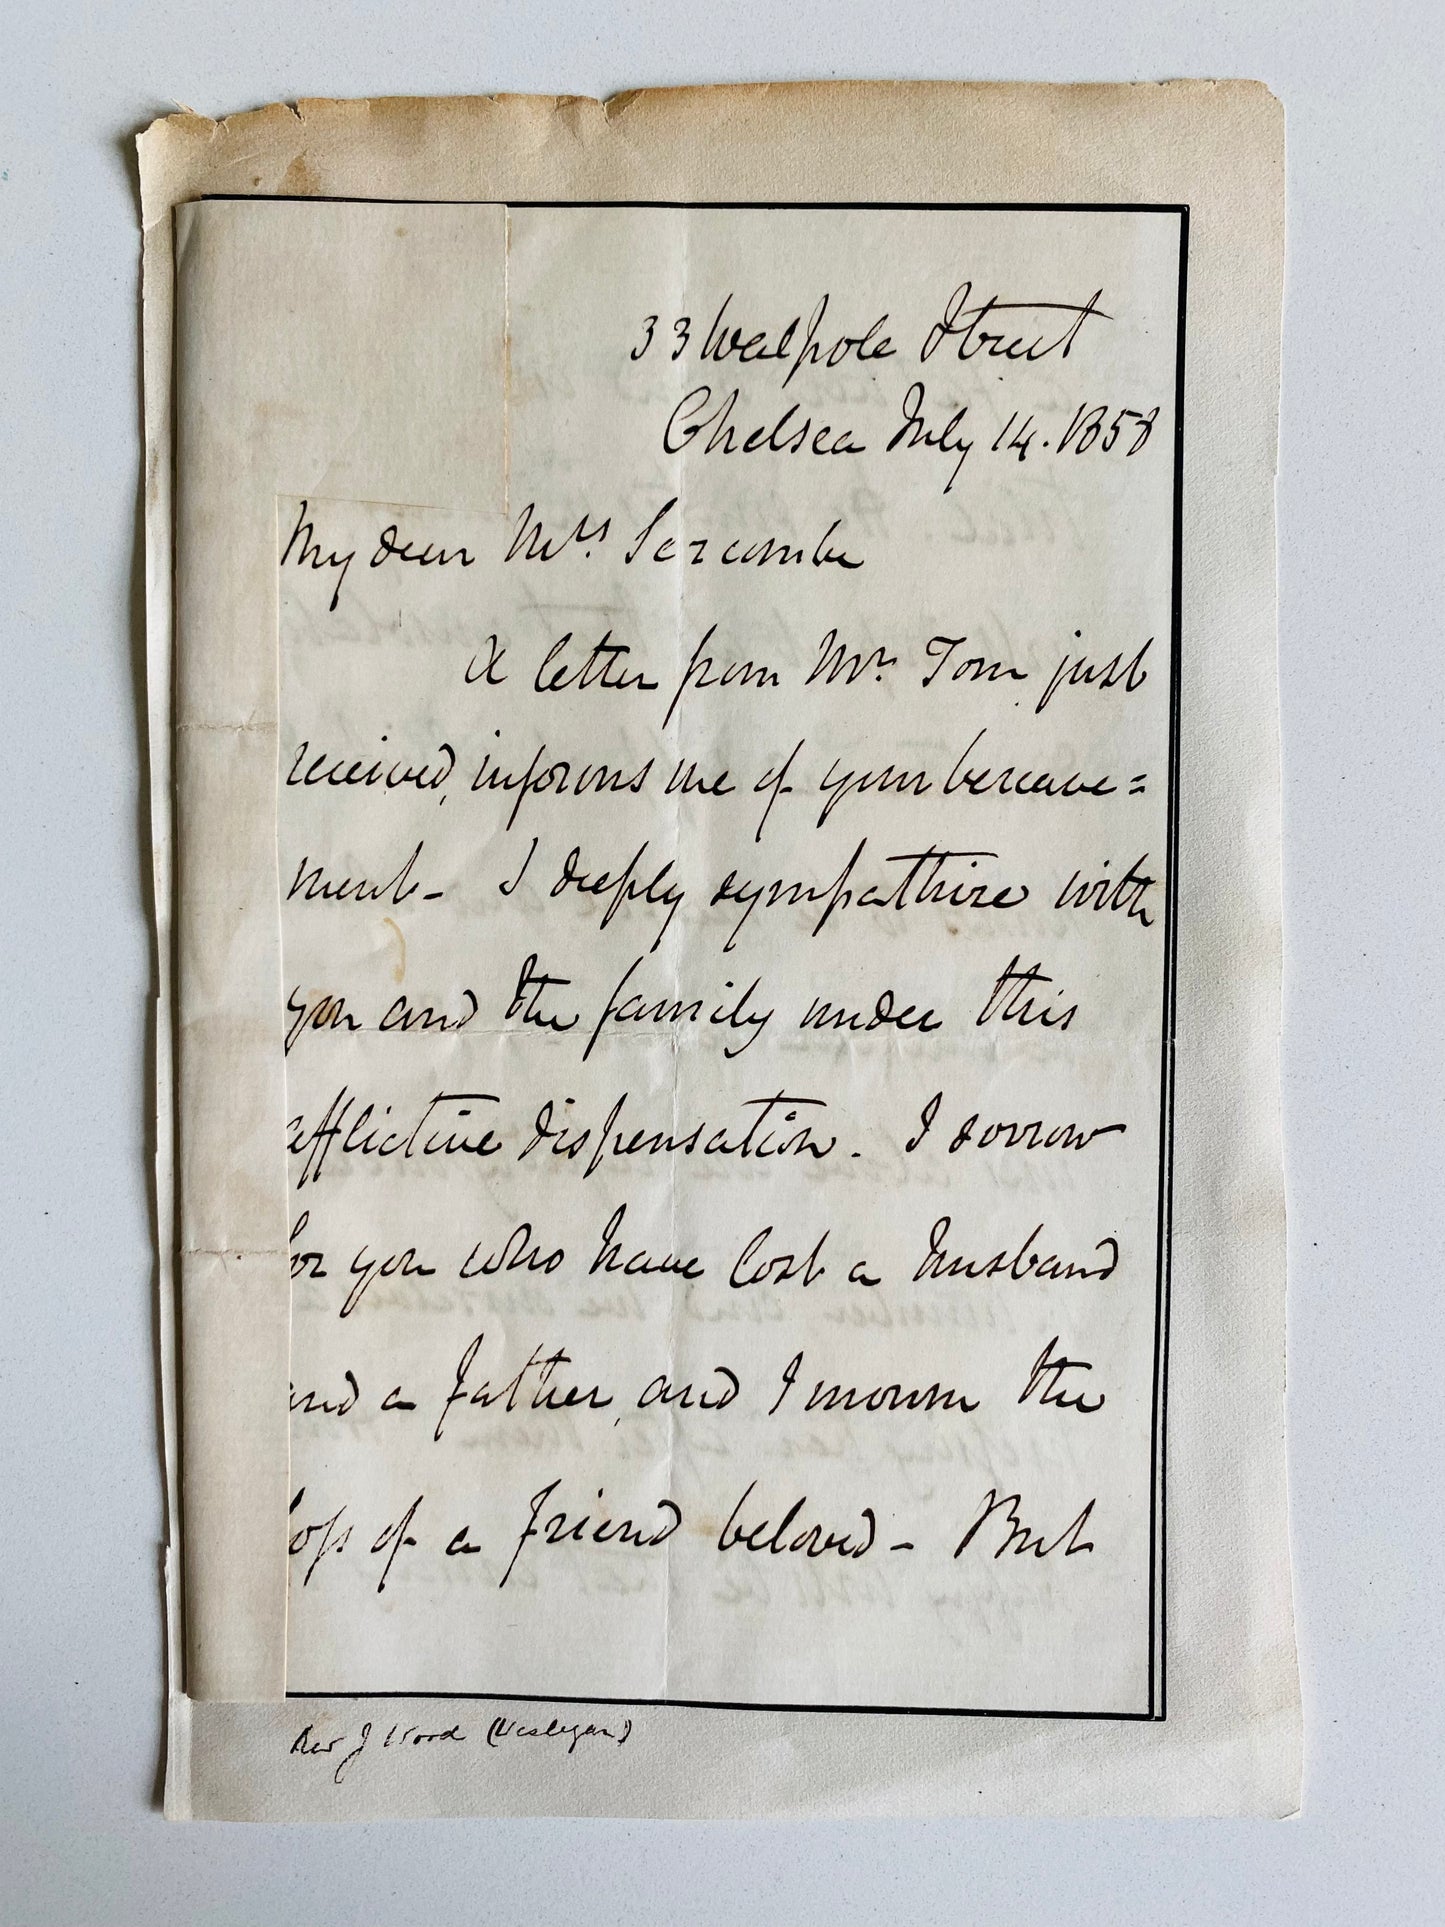 33 Walpole Street
Chelsea July 14. 1858
My dear Mrs.
A letter from Mr. Tom just
received, informs me of your bereave=
ment - I deeply sympathize with
you and the family under this
afflictive dispensation. I sorrow
for you who have lost a husband
and a father, and I mourn the
loss of a friend beloved - But
Rev J Wood (Wesleyan)